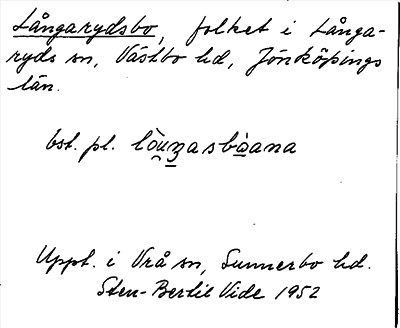 Långarydsbo, folket i Långa-
ryds sn, Västbo hd, Jönköpings
län.
best. pl. lòu̯ꝫasbàana
Uppt. i Vrå sn, Sunnerbo hd.
Sten-Bertil Vide 1952